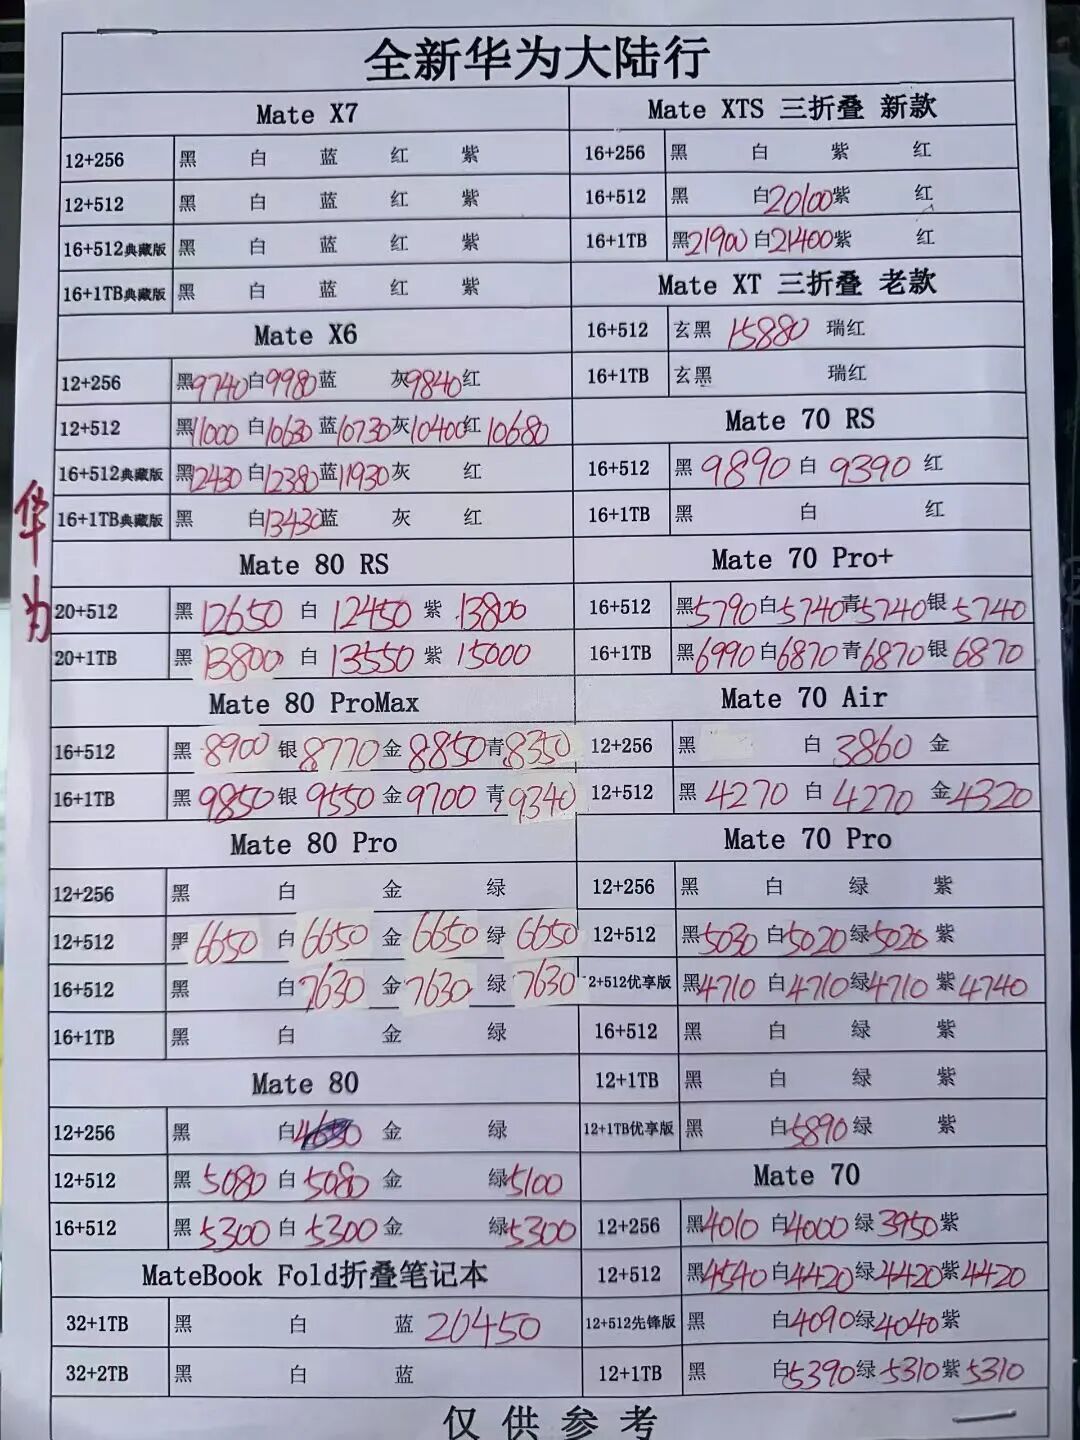 全新华为大陆行
Mate X7
12+256 黑 白 蓝 红 紫
12+512 黑 白 蓝 红 紫
16+512典藏版 黑 白 蓝 红 紫
16+1TB典藏版 黑 白 蓝 红 紫
Mate X6
12+256 黑9740 白9980 蓝 灰9840 红
12+512 黑11000 白10630 蓝10730 灰10400 红10680
16+512典藏版 黑12430 白12380 蓝11930 灰 红
16+1TB典藏版 黑 白13430 蓝 灰 红
华为
Mate 80 RS
20+512 黑 12650 白 12450 紫 13800
20+1TB 黑 13800 白 13550 紫 15000
Mate 80 ProMax
16+512 黑 8900 银 8770 金 8850 青 8350
16+1TB 黑 9850 银 9550 金 9700 青 9340
Mate 80 Pro
12+256 黑 白 金 绿
12+512 黑 6650 白 6650 金 6650 绿 6650
16+512 黑 白 7630 金 7630 绿 7630
16+1TB 黑 白 金 绿
Mate 80
12+256 黑 白 金 绿
12+512 黑 5080 白 5080 金 绿5100
16+512 黑 5300 白 5300 金 绿5300
MateBook Fold折叠笔记本
32+1TB 黑 白 蓝 20450
32+2TB 黑 白 蓝
Mate XTS 三折叠 新款
16+256 黑 白 紫 红
16+512 黑 白20100 紫 红
16+1TB 黑21900 白21400 紫 红
Mate XT 三折叠 老款
16+512 玄黑 15880 瑞红
16+1TB 玄黑 瑞红
Mate 70 RS
16+512 黑 9890 白 9390 红
16+1TB 黑 白 红
Mate 70 Pro+
16+512 黑5790 白5740 青5740 银5740
16+1TB 黑6990 白6870 青6870 银6870
Mate 70 Air
12+256 黑 白 3860 金
12+512 黑 4270 白 4270 金4320
Mate 70 Pro
12+256 黑 白 绿 紫
12+512 黑5030 白5020 绿5020 紫
12+512优享版 黑4710 白4710 绿4710 紫4740
16+512 黑 白 绿 紫
12+1TB 黑 白 绿 紫
12+1TB优享版 黑 白5890 绿 紫
Mate 70
12+256 黑4010 白4000 绿3950 紫
12+512 黑4540 白4420 绿4420 紫4420
12+512先锋版 黑 白4090 绿4040 紫
12+1TB 黑 白5390 绿5310 紫5310
仅供参考